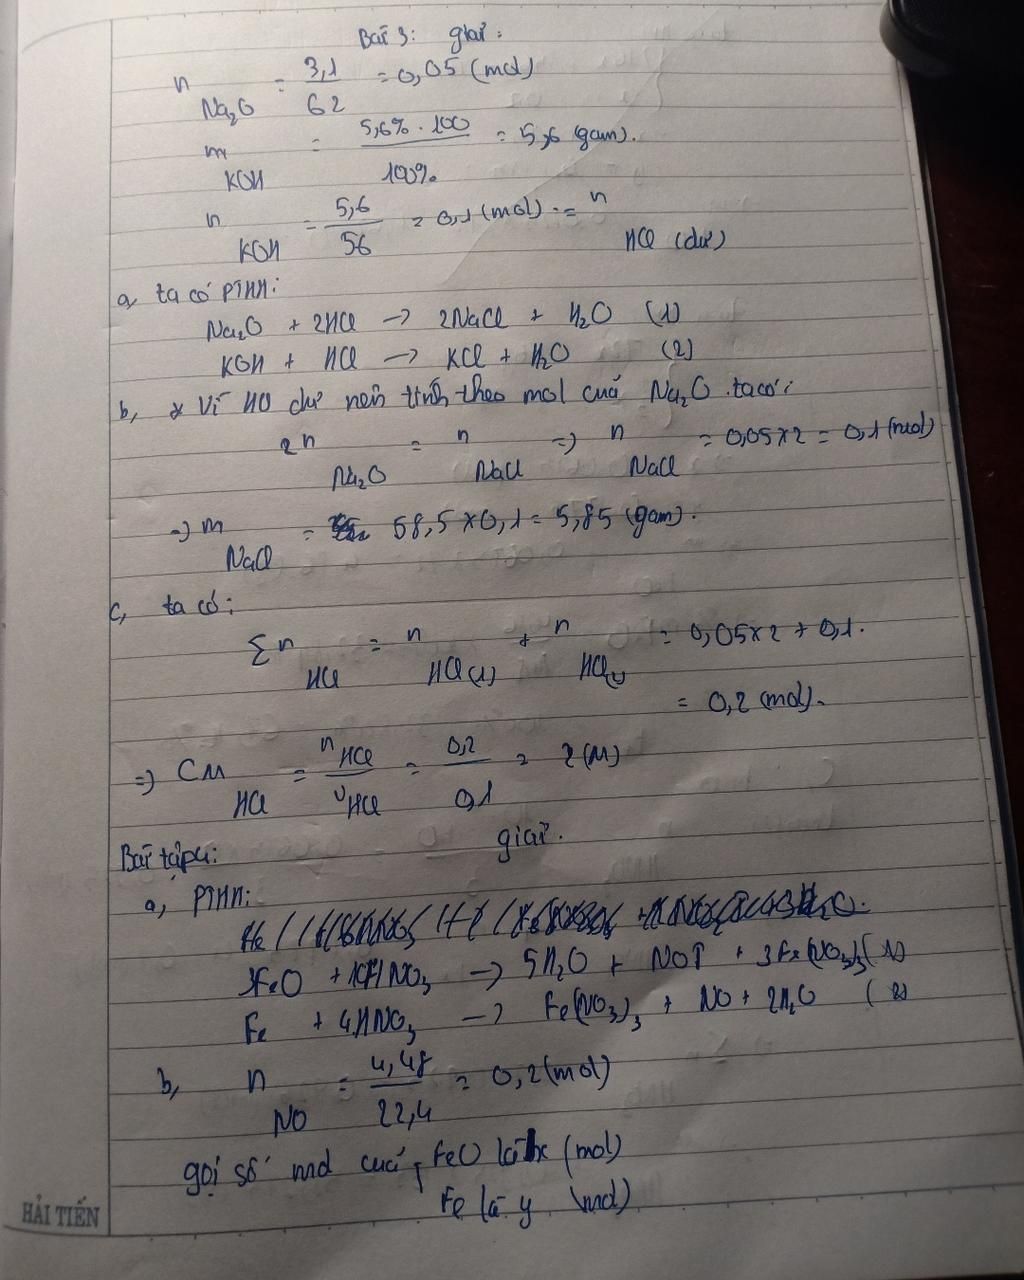 Bài 3: giải:
n Na₂O = 3,1 / 62 = 0,05 (mol)
m KOH = 5,6% . 100 / 100% = 5,6 (gam).
n KOH = 5,6 / 56 = 0,1 (mol) . = n HCl (dư)
a, ta có PTHH:
Na₂O + 2HCl -> 2NaCl + H₂O (1)
KOH + HCl -> KCl + H₂O (2)
b, * Vì dư nên tính theo mol của Na₂O . ta có:
2n Na₂O = n NaCl => n NaCl = 0,05 x 2 = 0,1 (mol)
=> m NaCl = 58,5 x 0,1 = 5,85 (gam).
c, ta có:
Σn HCl = n HCl(1) + n HCl(2) = 0,05 x 2 + 0,1.
= 0,2 (mol).
=> CM HCl = nHCl / VHCl = 0,2 / 0,1 = 2 (M)
Bài tập 4: giải.
a, PTHH:
3FeO + 10HNO₃ -> 5H₂O + NO↑ + 3Fe(NO₃)₃ (1)
Fe + 4HNO₃ -> Fe(NO₃)₃ + NO + 2H₂O (2)
b, n NO = 4,48 / 22,4 = 0,2 (mol)
gọi số mol của { FeO là x (mol)
Fe là y (mol)
HẢI TIẾN